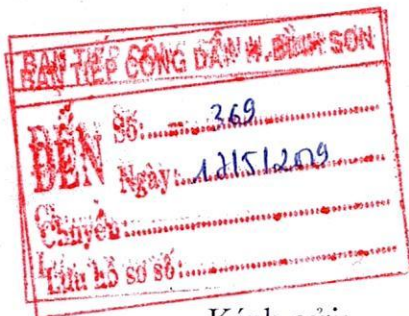 BAN TIẾP CÔNG DÂN H. BÌNH SƠN
ĐẾN
Số: 369
Ngày: 17/5/2019
Chuyển:
Lưu hồ sơ số:
Kính gửi: